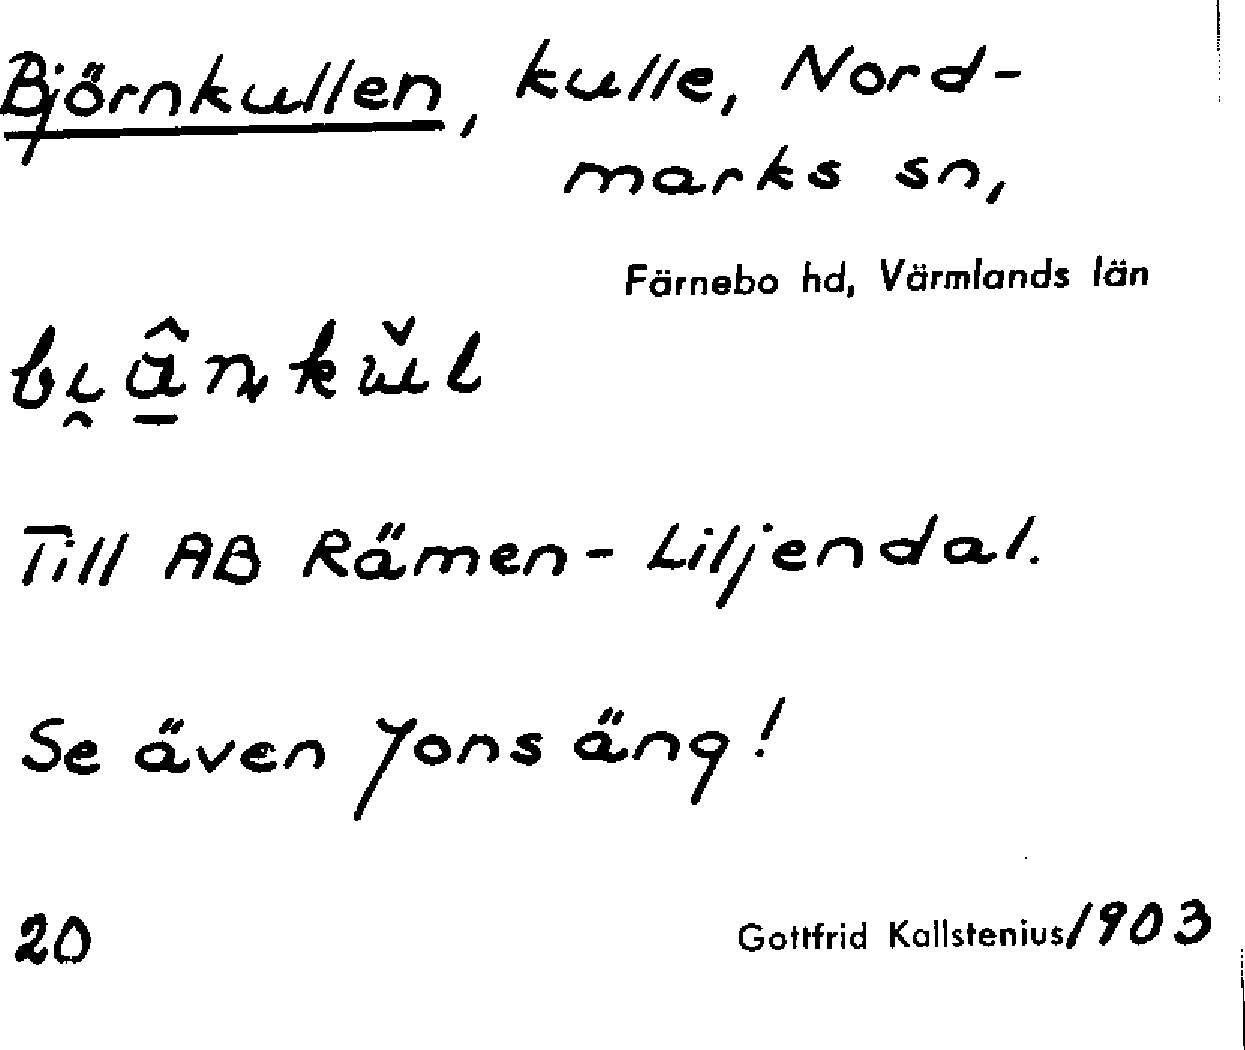 Björnkullen, kulle, Nord-
marks sn,
Färnebo hd, Värmlands län
Till AB Rämen-Liljendal.
Se även Jons äng!
20
Gottfrid Kallstenius/1903